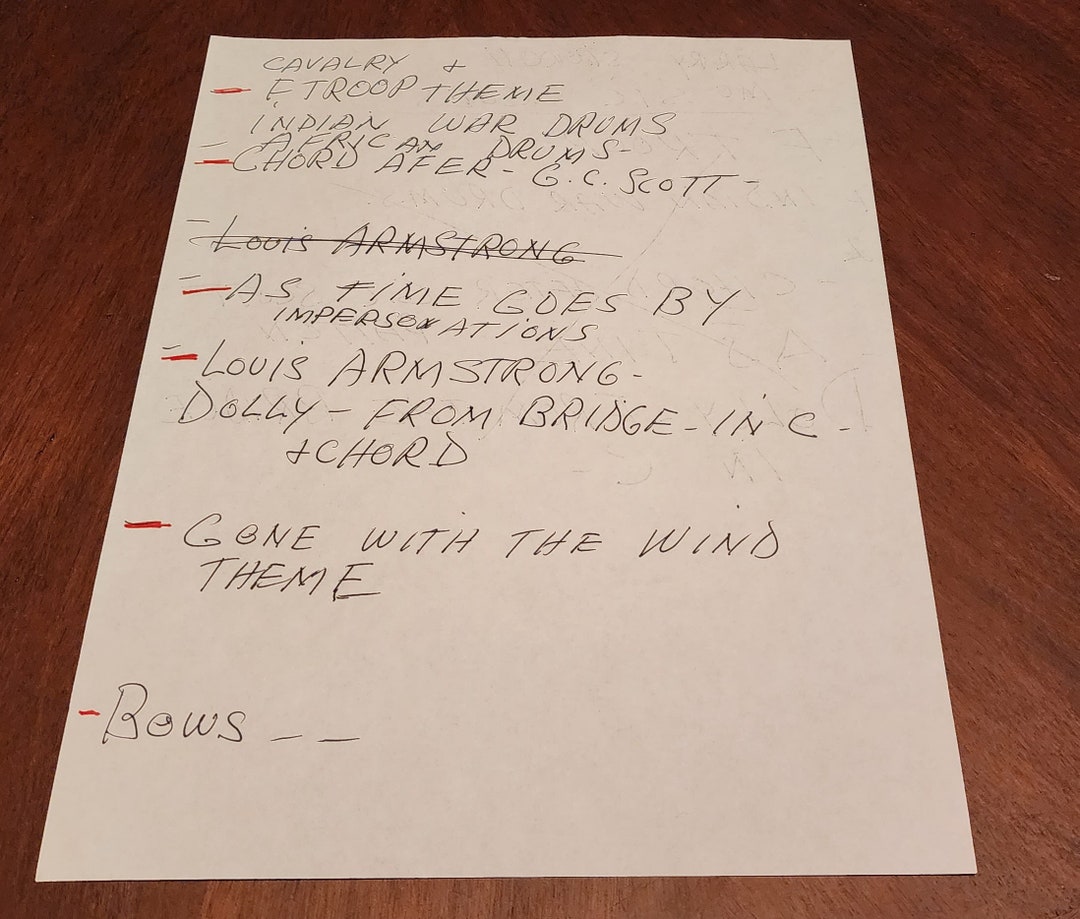 CAVALRY &
- F TROOP THEME
INDIAN WAR DRUMS
- AFRICAN DRUMS-
- CHORD AFER - G.C. SCOTT -
- LOUIS ARMSTRONG
- AS TIME GOES BY
IMPERSONATIONS
- LOUIS ARMSTRONG-
DOLLY - FROM BRIDGE - IN C -
& CHORD
- GONE WITH THE WIND
THEME
- BOWS - -